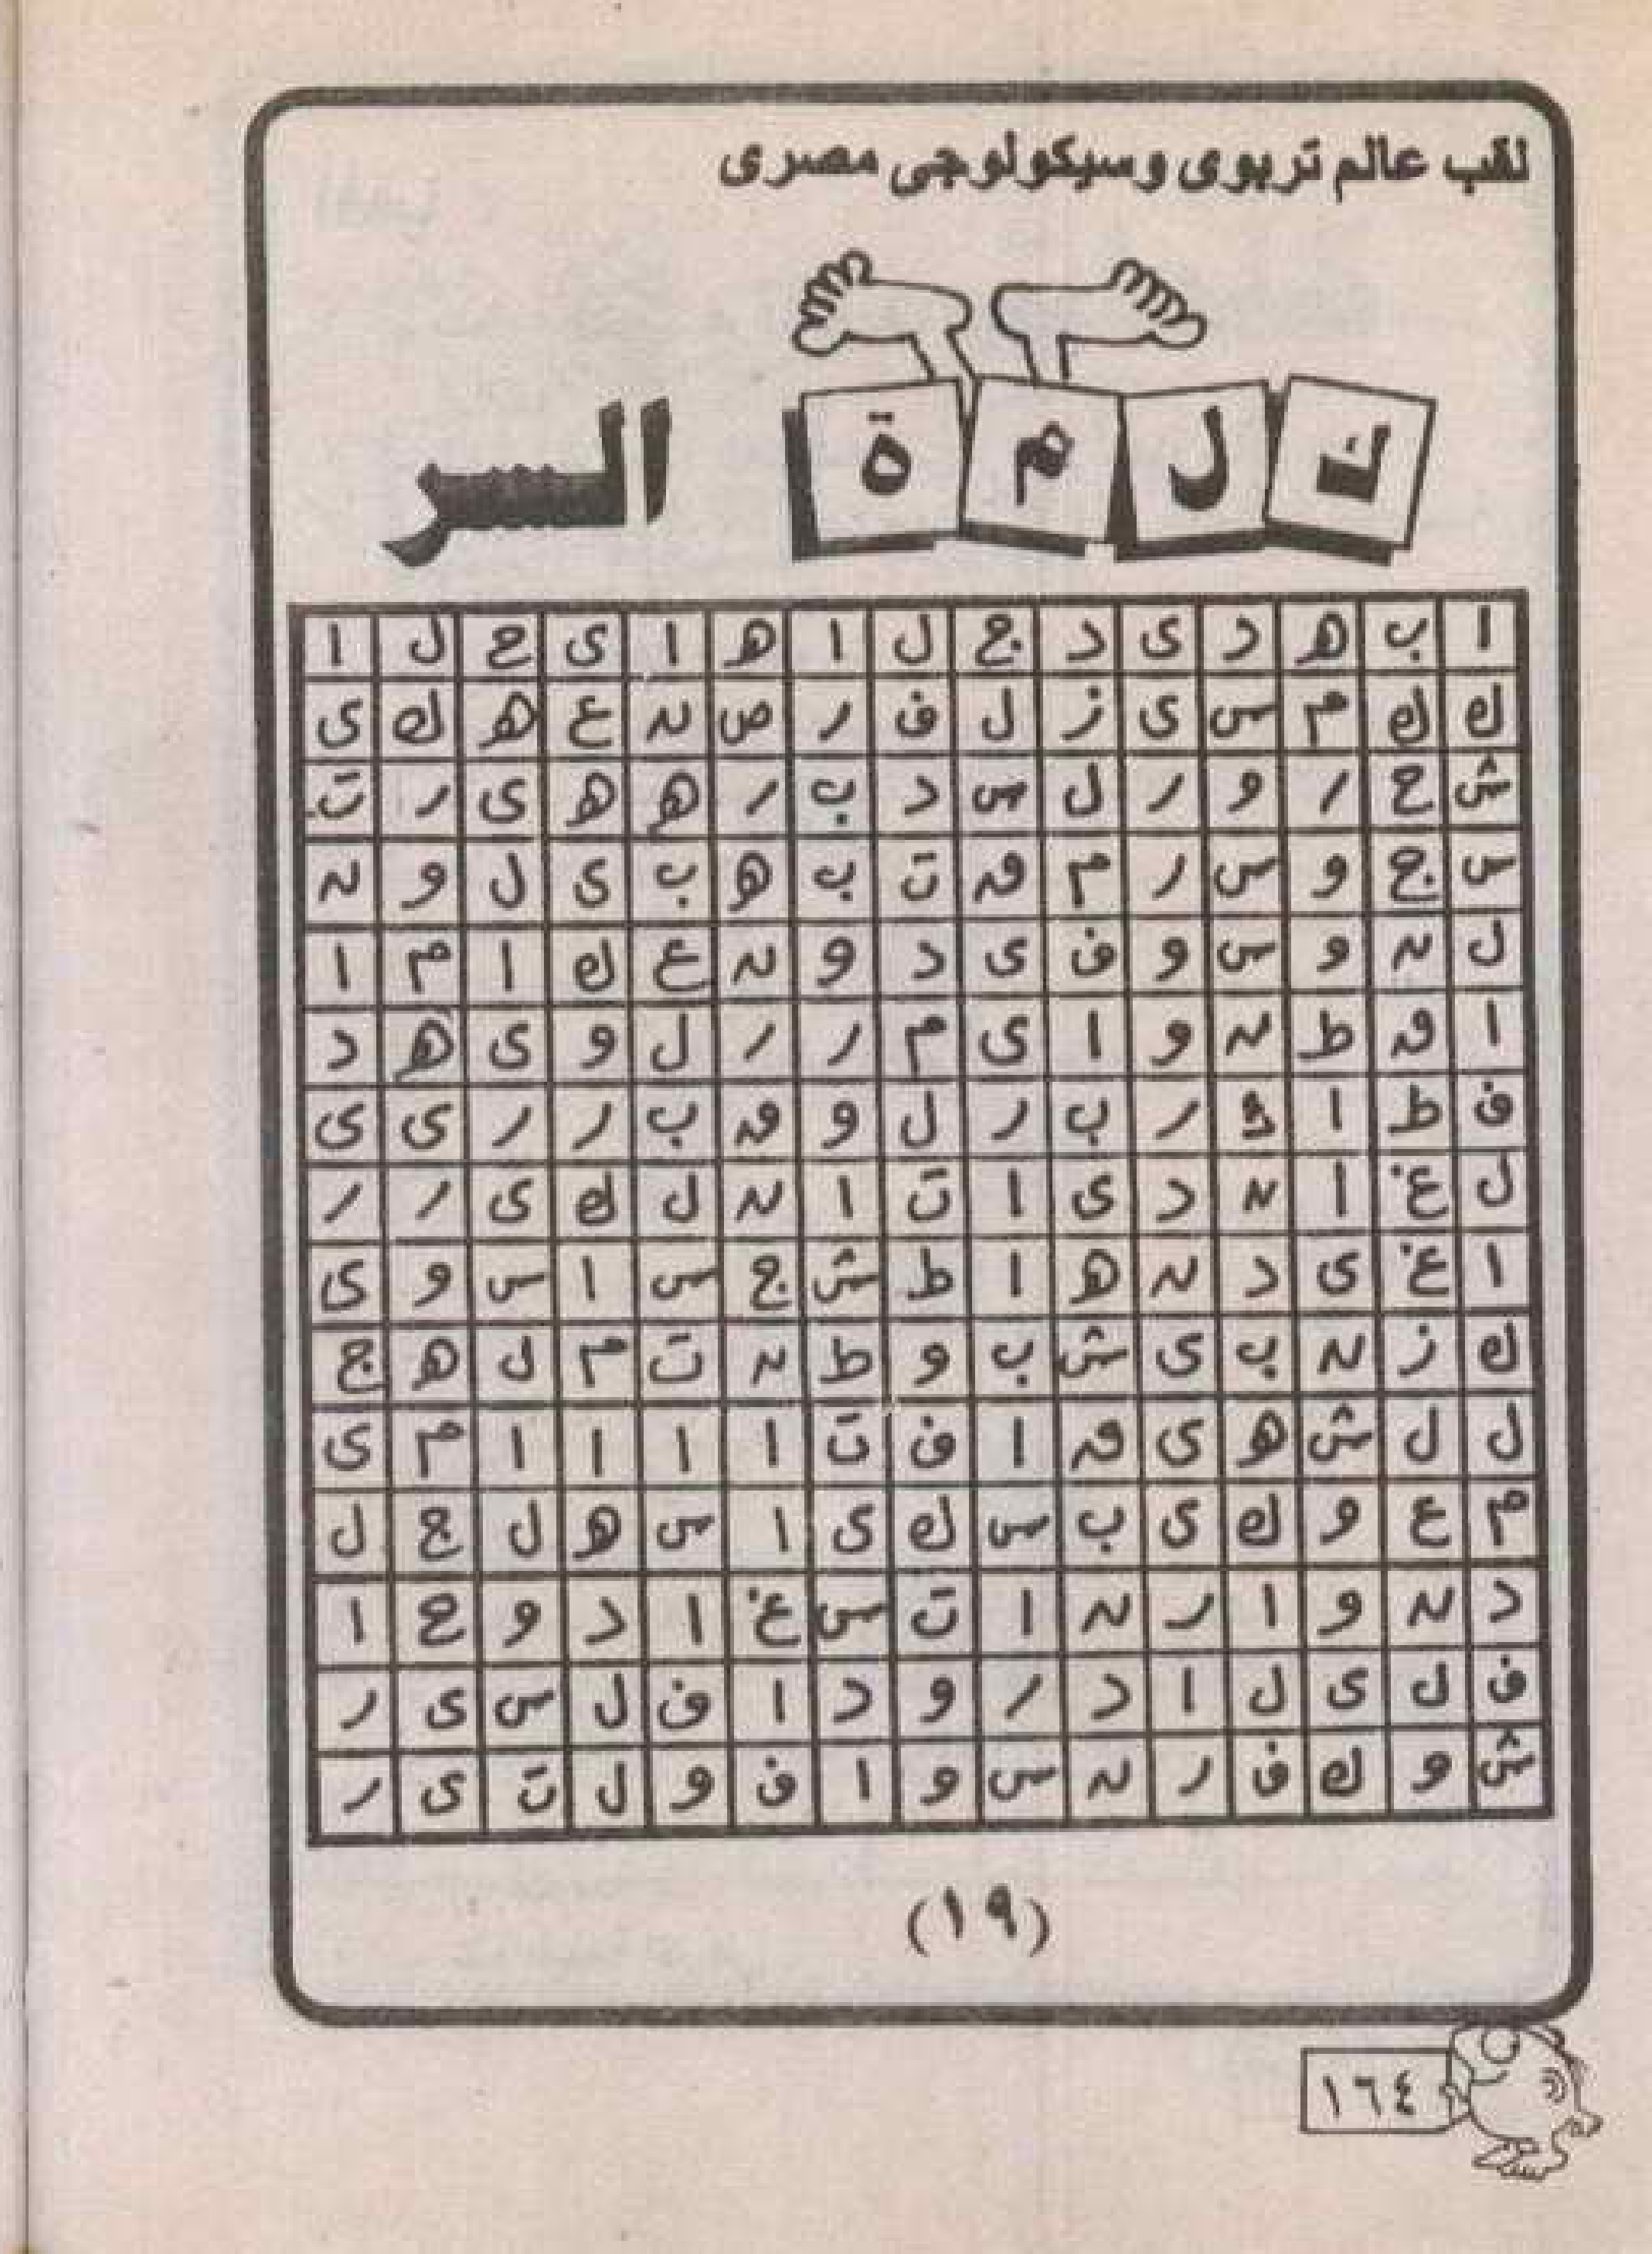 لقب عالم تربوى وسيكولوجى مصرى
ك ل م ة السر
ا ب هـ د ى د ج ل ا هـ ا ى ح ل ا
ك ك م س ى ز ل ف ر ص ن ع هـ ك ى
ش ح ر و ر ل س د ب ر هـ هـ ى ر ت
س ج و س ر م ق ت ب هـ ب ى ل و ن
ل ن و س و ف ى د و ن ع ك ا م ا
ا ق ط ن و ا ى م ر ر ل و ى هـ د
ف ط ا ر ب ر ل و ق ب ر ر ى ى
ل غ ا ن د ى ا ت ا ن ل ك ى ر ر
ا غ ى د ن هـ ا ط ش ج س ا س و ى
ك ز ن ب ى ش ب و ط ن ت م ل هـ ج
ل ل ش هـ ى ق ا ف ت ا ا ا ا م ى
م ع و ك ى ب س ك ى ا س هـ ل ج ل
د ن و ا ر ن ا ت س غ ا د و ح ا
ف ل ى ل ا د ر و د ا ف ل س ى ر
ش و ك ف ر ن س و ا ف و ل ت ى ر
(١٩)
١٦٤